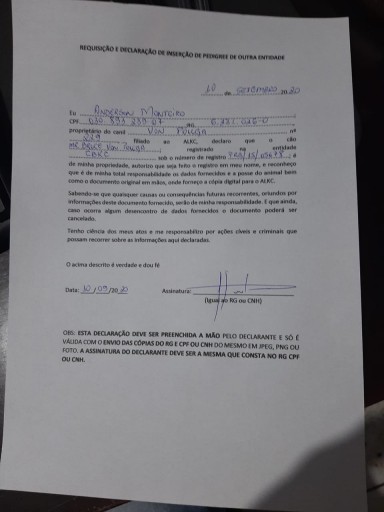 REQUISIÇÃO E DECLARAÇÃO DE INSERÇÃO DE PEDIGREE DE OUTRA ENTIDADE
10 de SETEMBRO 20 20
Eu ANDERSON MONTEIRO
CPF
proprietário do canil VON nº
229 filiado ao ALKC, declaro que o cão
VON registrado na entidade
CBKC sob o número de registro e
de minha propriedade, autorizo que seja feito o registro em meu nome, e reconheço
que é de minha total responsabilidade os dados fornecidos e a posse do animal bem
como o documento original em mãos, onde forneço a cópia digital para o ALKC.
Sabendo-se que quaisquer causas ou consequências futuras recorrentes, oriundos por
informações deste documento fornecido, serão de minha responsabilidade. E que ainda,
caso ocorra algum desencontro de dados fornecidos o documento poderá ser
cancelado.
Tenho ciência dos meus atos e me responsabilizo por ações cíveis e criminais que
possam recorrer sobre as informações aqui declaradas.
O acima descrito é verdade e dou fé
Data: 10 / 09 /20 20 Assinatura:
(Igual ao RG ou CNH)
OBS: ESTA DECLARAÇÃO DEVE SER PREENCHIDA A MÃO PELO DECLARANTE E SÓ É
VÁLIDA COM O ENVIO DAS CÓPIAS DO RG E CPF OU CNH DO MESMO EM JPEG, PNG OU
FOTO. A ASSINATURA DO DECLARANTE DEVE SER A MESMA QUE CONSTA NO RG CPF
OU CNH.